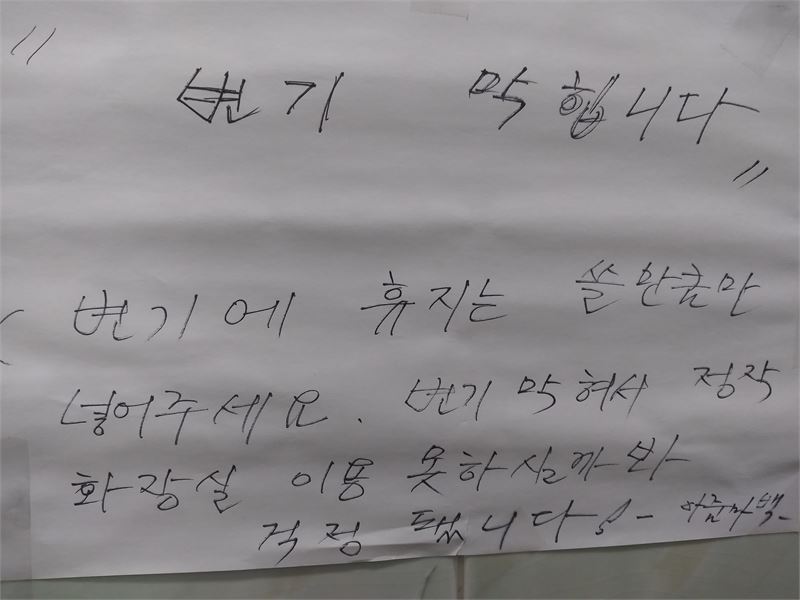 "
변기 막힙니다
"
변기에 휴지는 쓸만큼만
넣어주세요. 변기 막혀서 정작
화장실 이용 못하실까봐
걱정 됐습니다! - 아줌마백 -